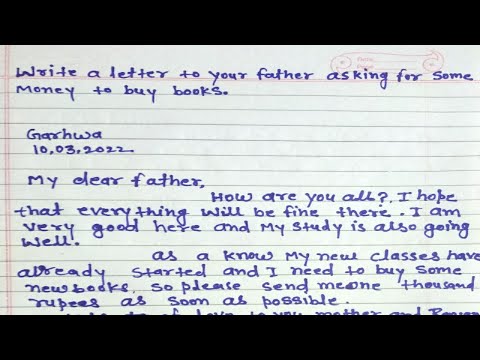 Write a letter to your father asking for some
money to buy books.
Garhwa
10.03.2022
My dear father,
How are you all?, I hope
that everything will be fine there. I am
very good here and my study is also going
well.
as a know my new classes have
already started and I need to buy some
new books, so please send me one thousand
rupees as soon as possible.
love to you mother and